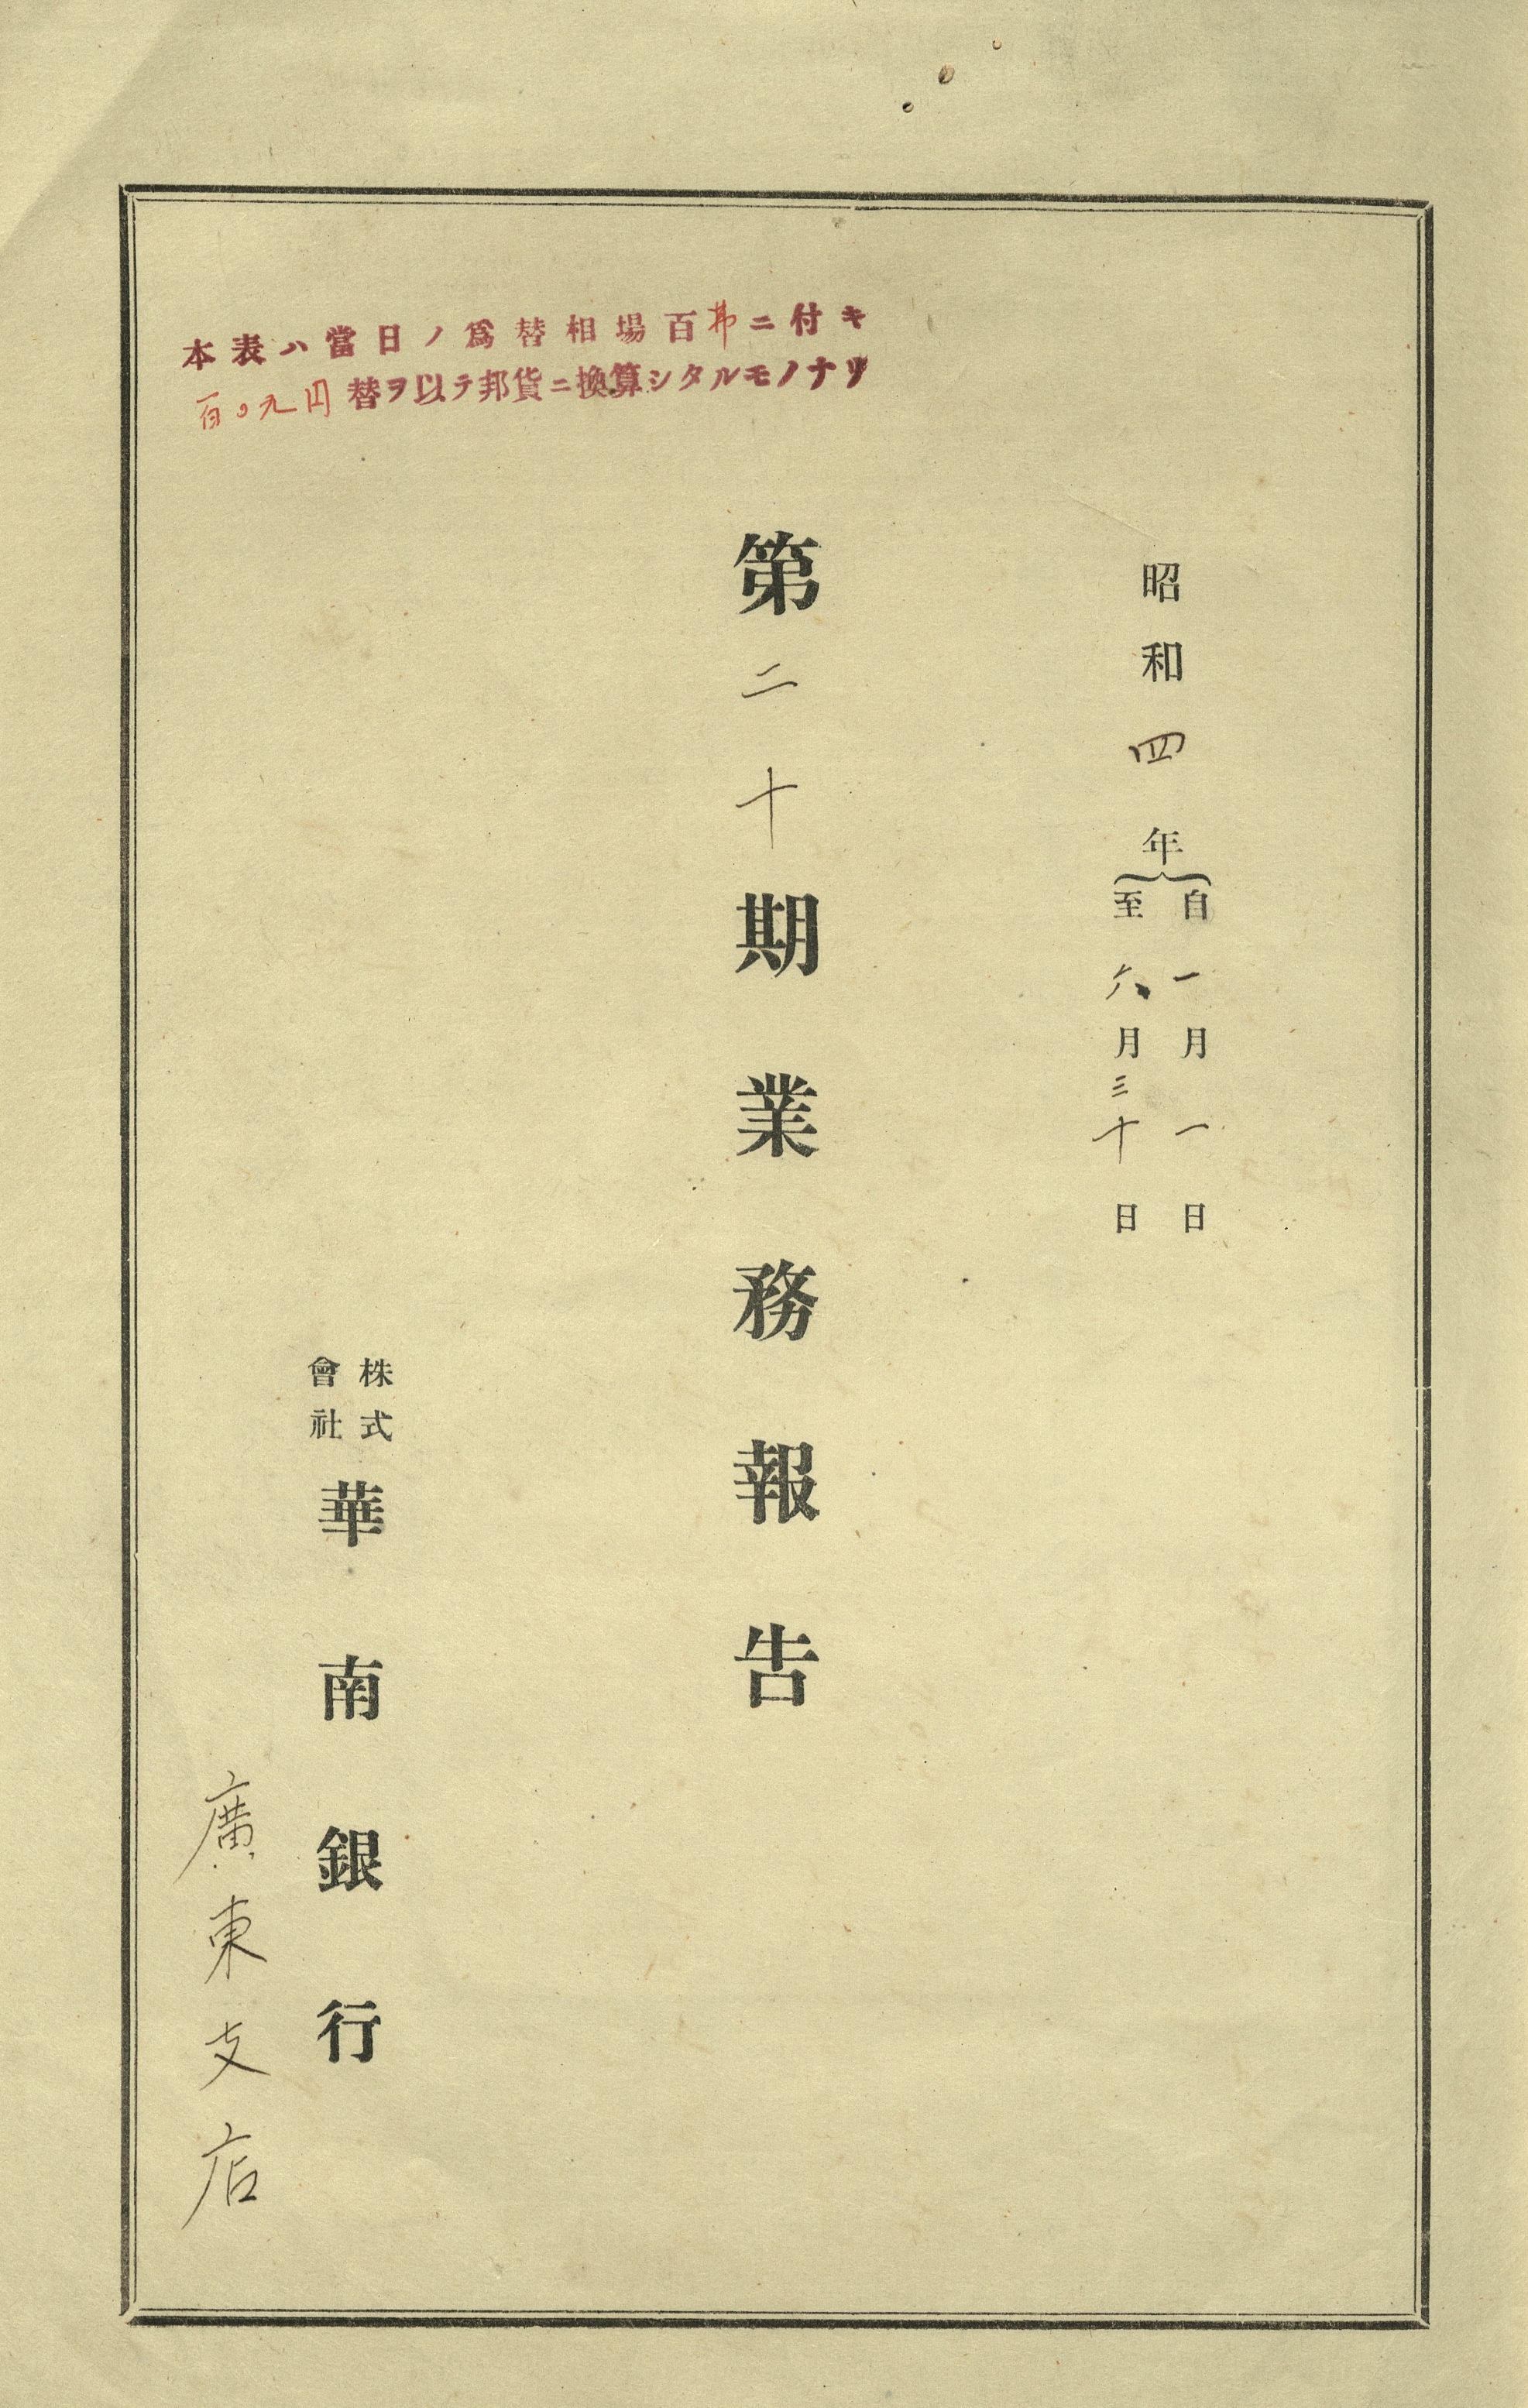 本表ハ當日ノ爲替相場百弗ニ付キ
百〇九円替ヲ以テ邦貨ニ換算シタルモノナリ
昭和四年
自一月一日
至六月三十日
第二十期業務報告
株式
會社
華南銀行
廣東支店